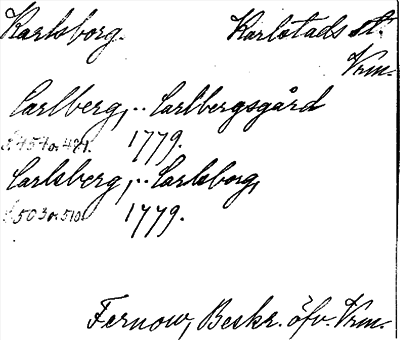 Karlsborg. Karlstads st.
Vrm.
Carlberg, .. Carlbergsgård
s. 454 o. 481. 1779.
Carlsberg, .. Carlsborg,
s. 503 o. 510. 1779.
Fernow, Beskr. öfv. Vrm.